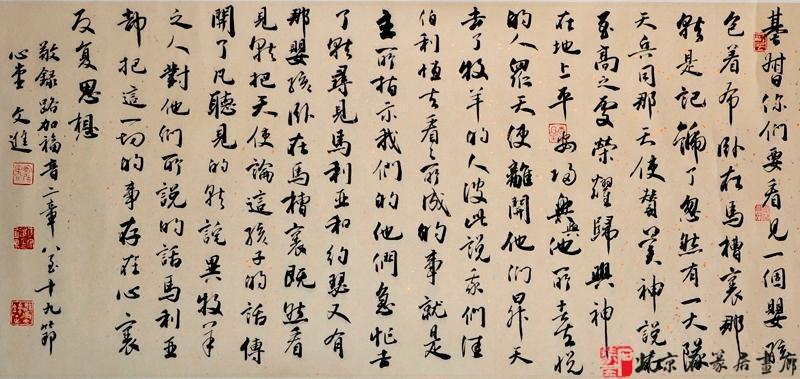 基督你们要看見一個嬰孩
包着布卧在馬槽裏那
就是記號了忽然有一大隊
天兵同那天使贊美神說
至高之處榮耀歸與神
在地上平安歸與他所喜悅
的人眾天使離開他们昇天
去了牧羊的人彼此說我们往
伯利恒去看看所成的事就是
主所指示我們的他們急忙去
了就尋見馬利亞和約瑟又有
那嬰孩卧在馬槽裏既然看
見就把天使論這孩子的話傳
開了凡聽見的就詫異牧羊
之人對他們所說的話馬利亞
却把這一切的事存在心裏
反复思想
敬録路加福音二章八至十九節
文進
京篆居畫廊